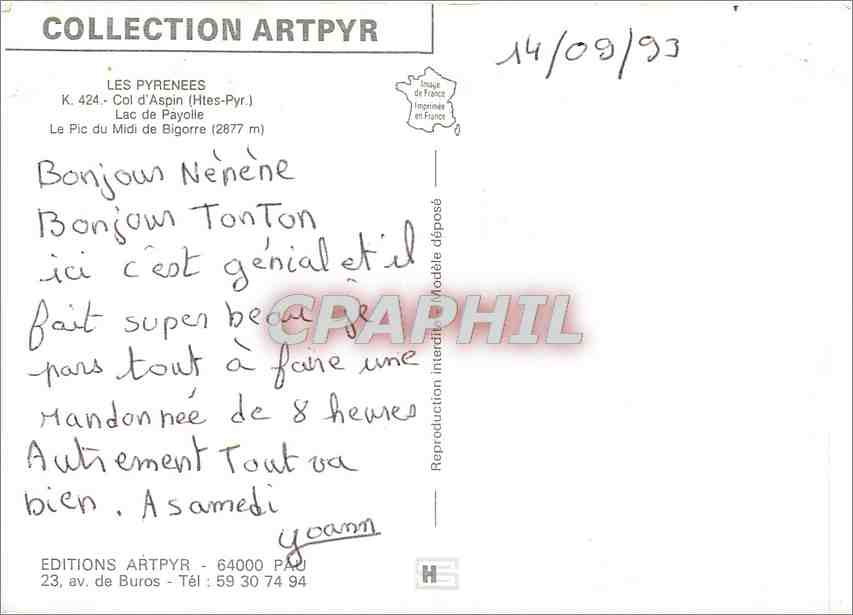 COLLECTION ARTPYR
14/09/93
LES PYRENEES
K. 424.- Col d'Aspin (Htes-Pyr.)
Lac de Payolle
Le Pic du Midi de Bigorre (2877 m)
Image
de France
Imprimée
en France
Bonjour Nénène
Bonjour TonTon
ici c'est génial et il
fait super beau je
pars tout à faire une
randonnée de 8 heures
Autrement Tout va
bien. A samedi
yoann
Reproduction interdite Modèle déposé
CPAPHIL
EDITIONS ARTPYR - 64000 PAU
23, av. de Buros - Tél : 59 30 74 94
H